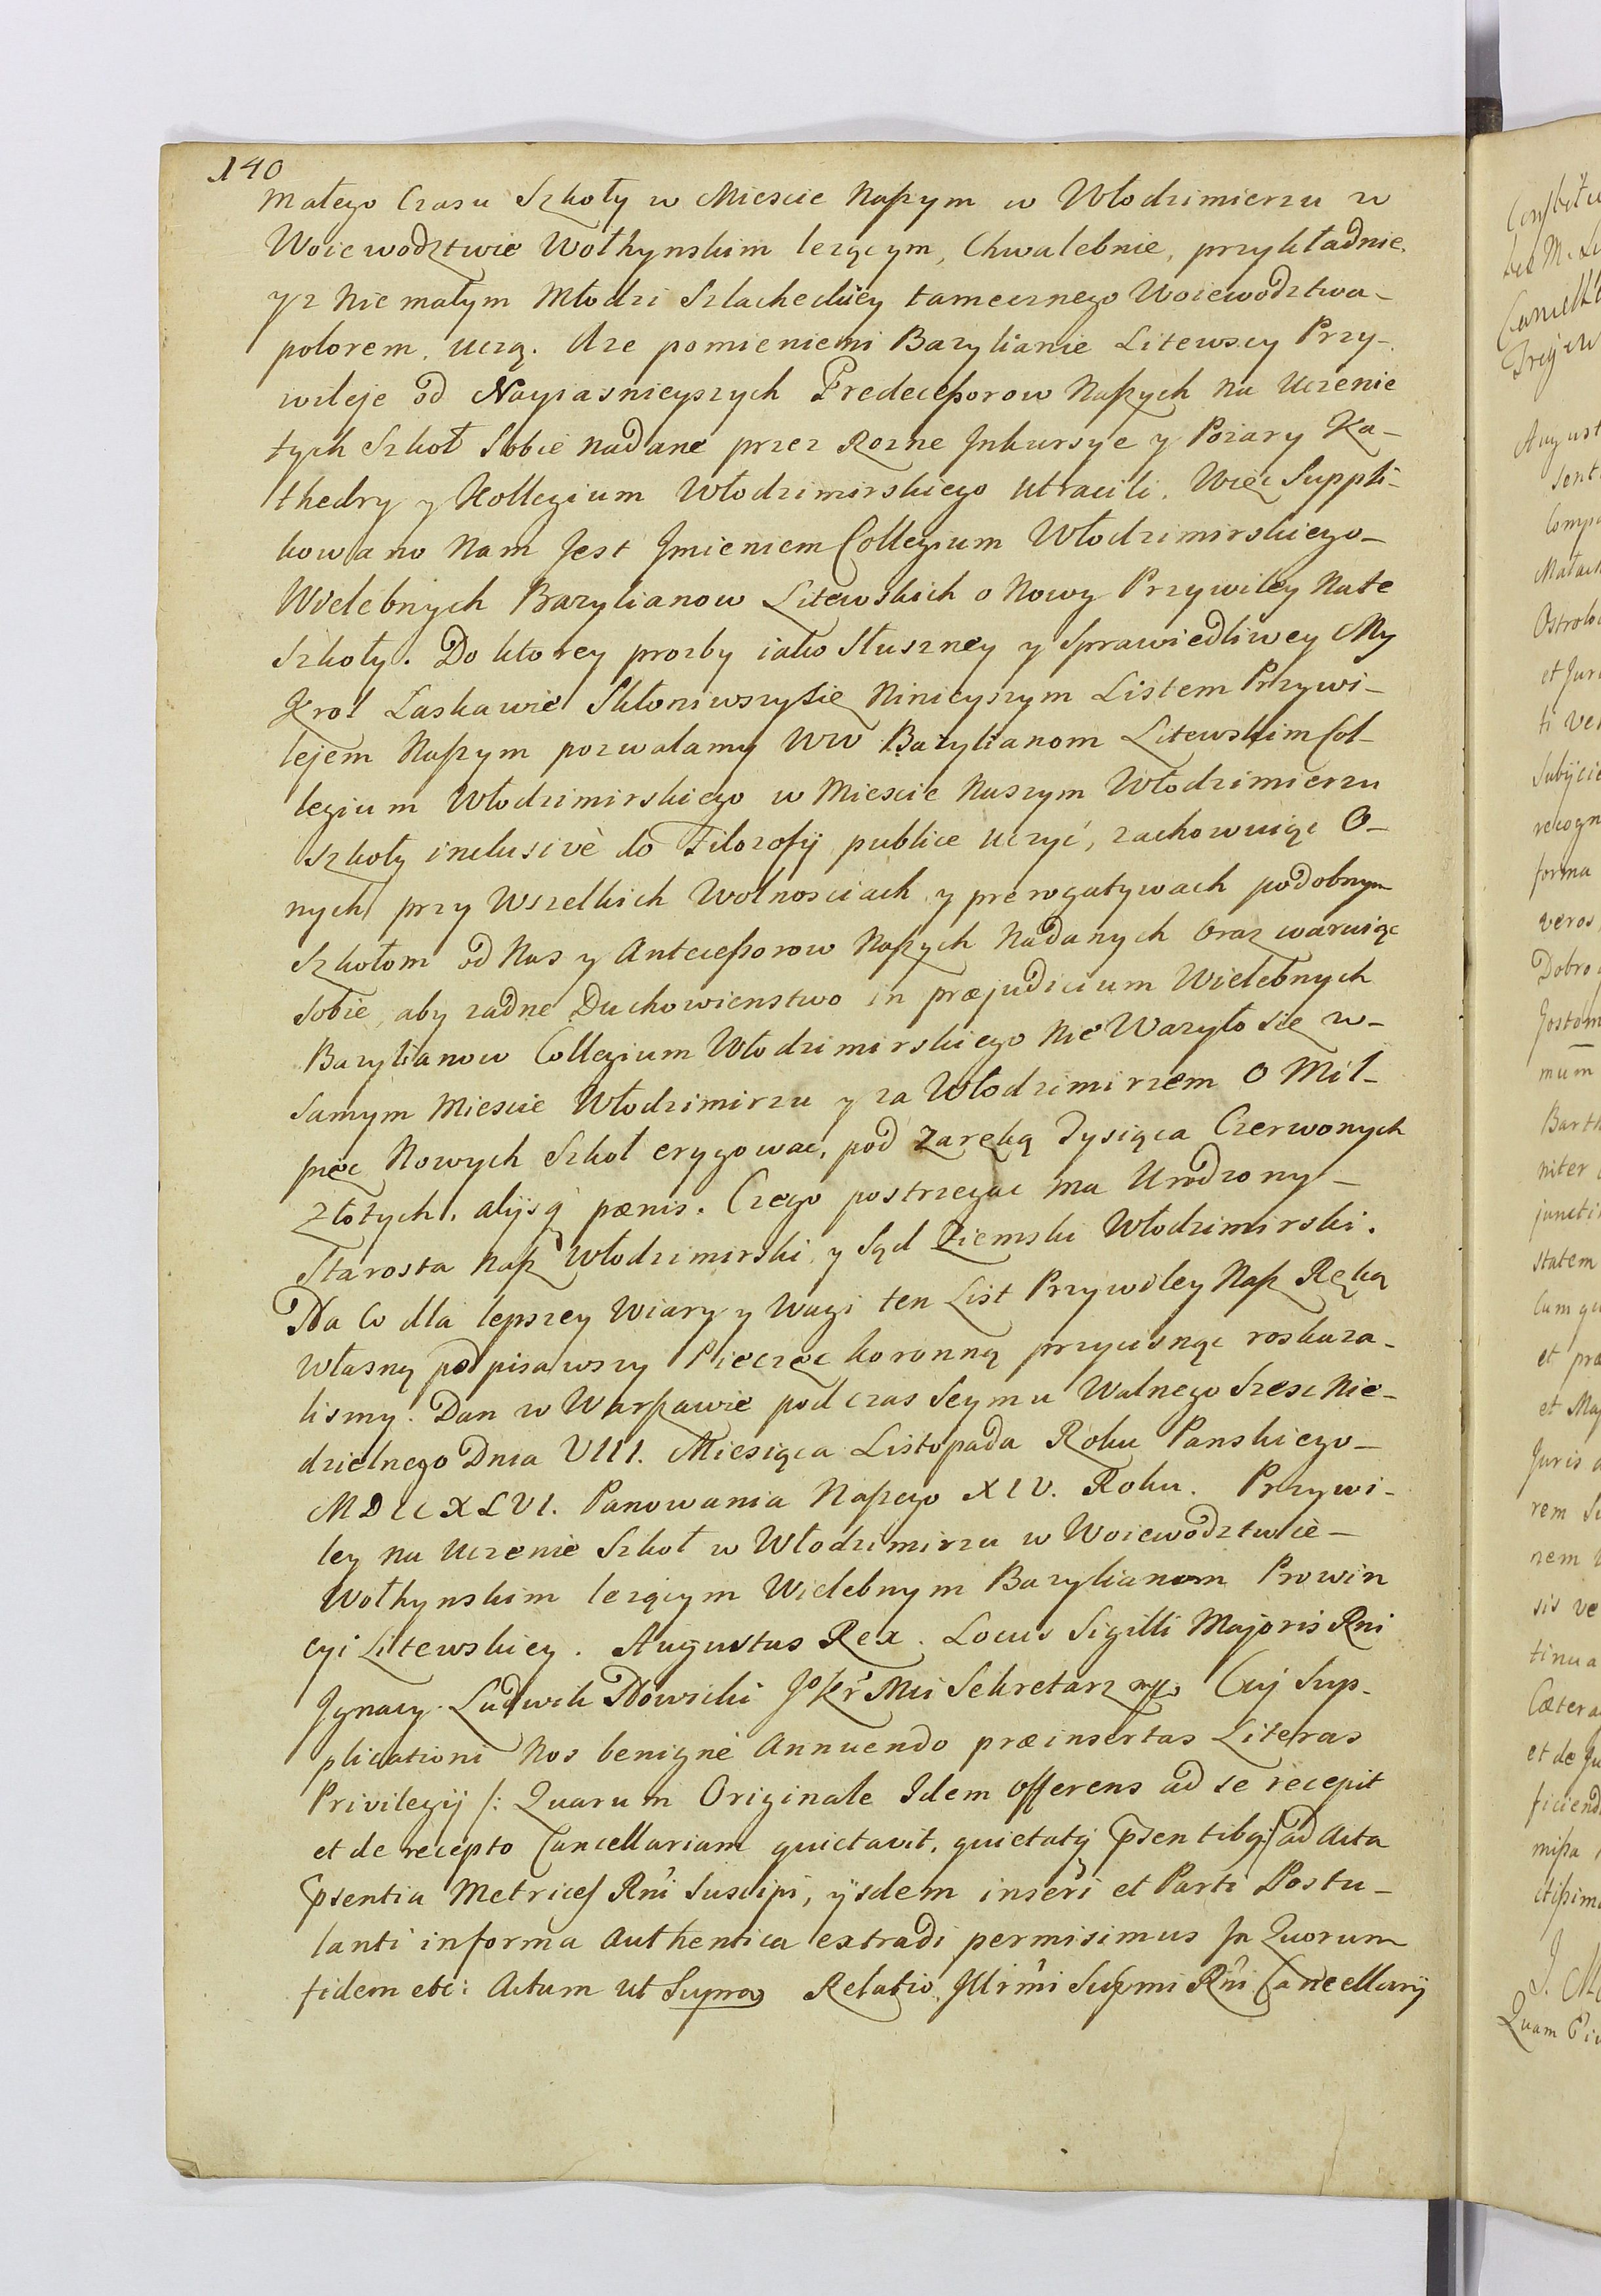 140
małego Czasu Szkoły w Miescie Naszym w Włodzimierzu w
Woiewodztwie Wołhynskim lezącym, Chwalebnie, przykładnie
y z Nie małym Młodzi Szlacheckiey tamecznego Woiewodztwa-
polorem, uczą. Aze pomienieni Bazylianie Litewscy Przy-
wileje od Nayiasnieyszych Predecessorow Naszych na Uczenie
tych Szkoł Sobie nadane przez Rozne Inkursye y Pozary Ka-
thedry y Kollegium Włodzimirskiego utracili. Więc Suppli-
kowano Nam Jest Jmieniem Collegium Włodzimirskiego-
Wielebnych Bazylianow Litewskich o Nowy Przywiley Na te
Szkoły. Do ktorey prozby iako Słuszney y Sprawiedliwey My
Krol Łaskawie Skłoniwszy Się Ninieyszym Listem Przywi-
lejem Naszym pozwalamy WW Bazylianom Litewskim Col-
legium Włodzimirskiego w Miescie Naszym Włodzimierzu
szkoły inclusivè do Filozofij publice uczyć, zachowuiąc O-
nych przy Wszelkich Wolnosciach y prerogatywach podobnym
Szkołom od Nas y Antecessorow Naszych Nadanych Oraz waruiąc
Sobie, aby zadne Duchowienstwo in præjudicium Wielebnych
Bazylianow Collegium Włodzimirskiego Nie Wazyło się w-
samym Miescie Włodzimirzu y za Włodzimirzem O Mil-
pięc Nowych Szkoł erygowac, pod Zaręką Tysiąca Czerwonych
Złotych, alijsq pænis. Czego postrzegac ma Urodzony-
Starosta Nasz Włodzimirski y Sąd Ziemski Włodzimirski.
Na Co dla lepszey Wiary y Wagi ten List Przywiley Nasz Ręką
Własną podpisawszy Pieczęc koronną przycisnąc roskaza-
lismy. Dan w Warszawie podczas Seymu Walnego Szesc Nie-
dzielnego Dnia VIII. Miesiąca Listopada Roku Panskiego-
MDCCXLVI. Panowania Naszego XIV. Roku. Przywi-
ley na Uczenie Szkoł w Włodzimirzu w Woiewodztwie-
Wołhynskim lezącym Wielebnym Bazylianom Prowin
cyi Litewskiey. Augustus Rex. Locus Sigilli Majoris Rni
Jgnacy Ludwik Nowicki Mci Sekretarz Cuj Sup-
plicationi Nos benignè Annuendo præinsertas Literas
Privilegij /: Quarum Originale Idem Offerens ad se recepit
et de recepto Cancellariam quietavit, quietatq psentibq :/ ad Acta
psentia Metrices Rni suscipi, ijsdem inseri et Parti Postu-
lanti in forma Authentica extradi permisimus Jn Quorum
fidem etc: Actum ut Supra Relatio Jllrmi Supmi Rni Cancellarij